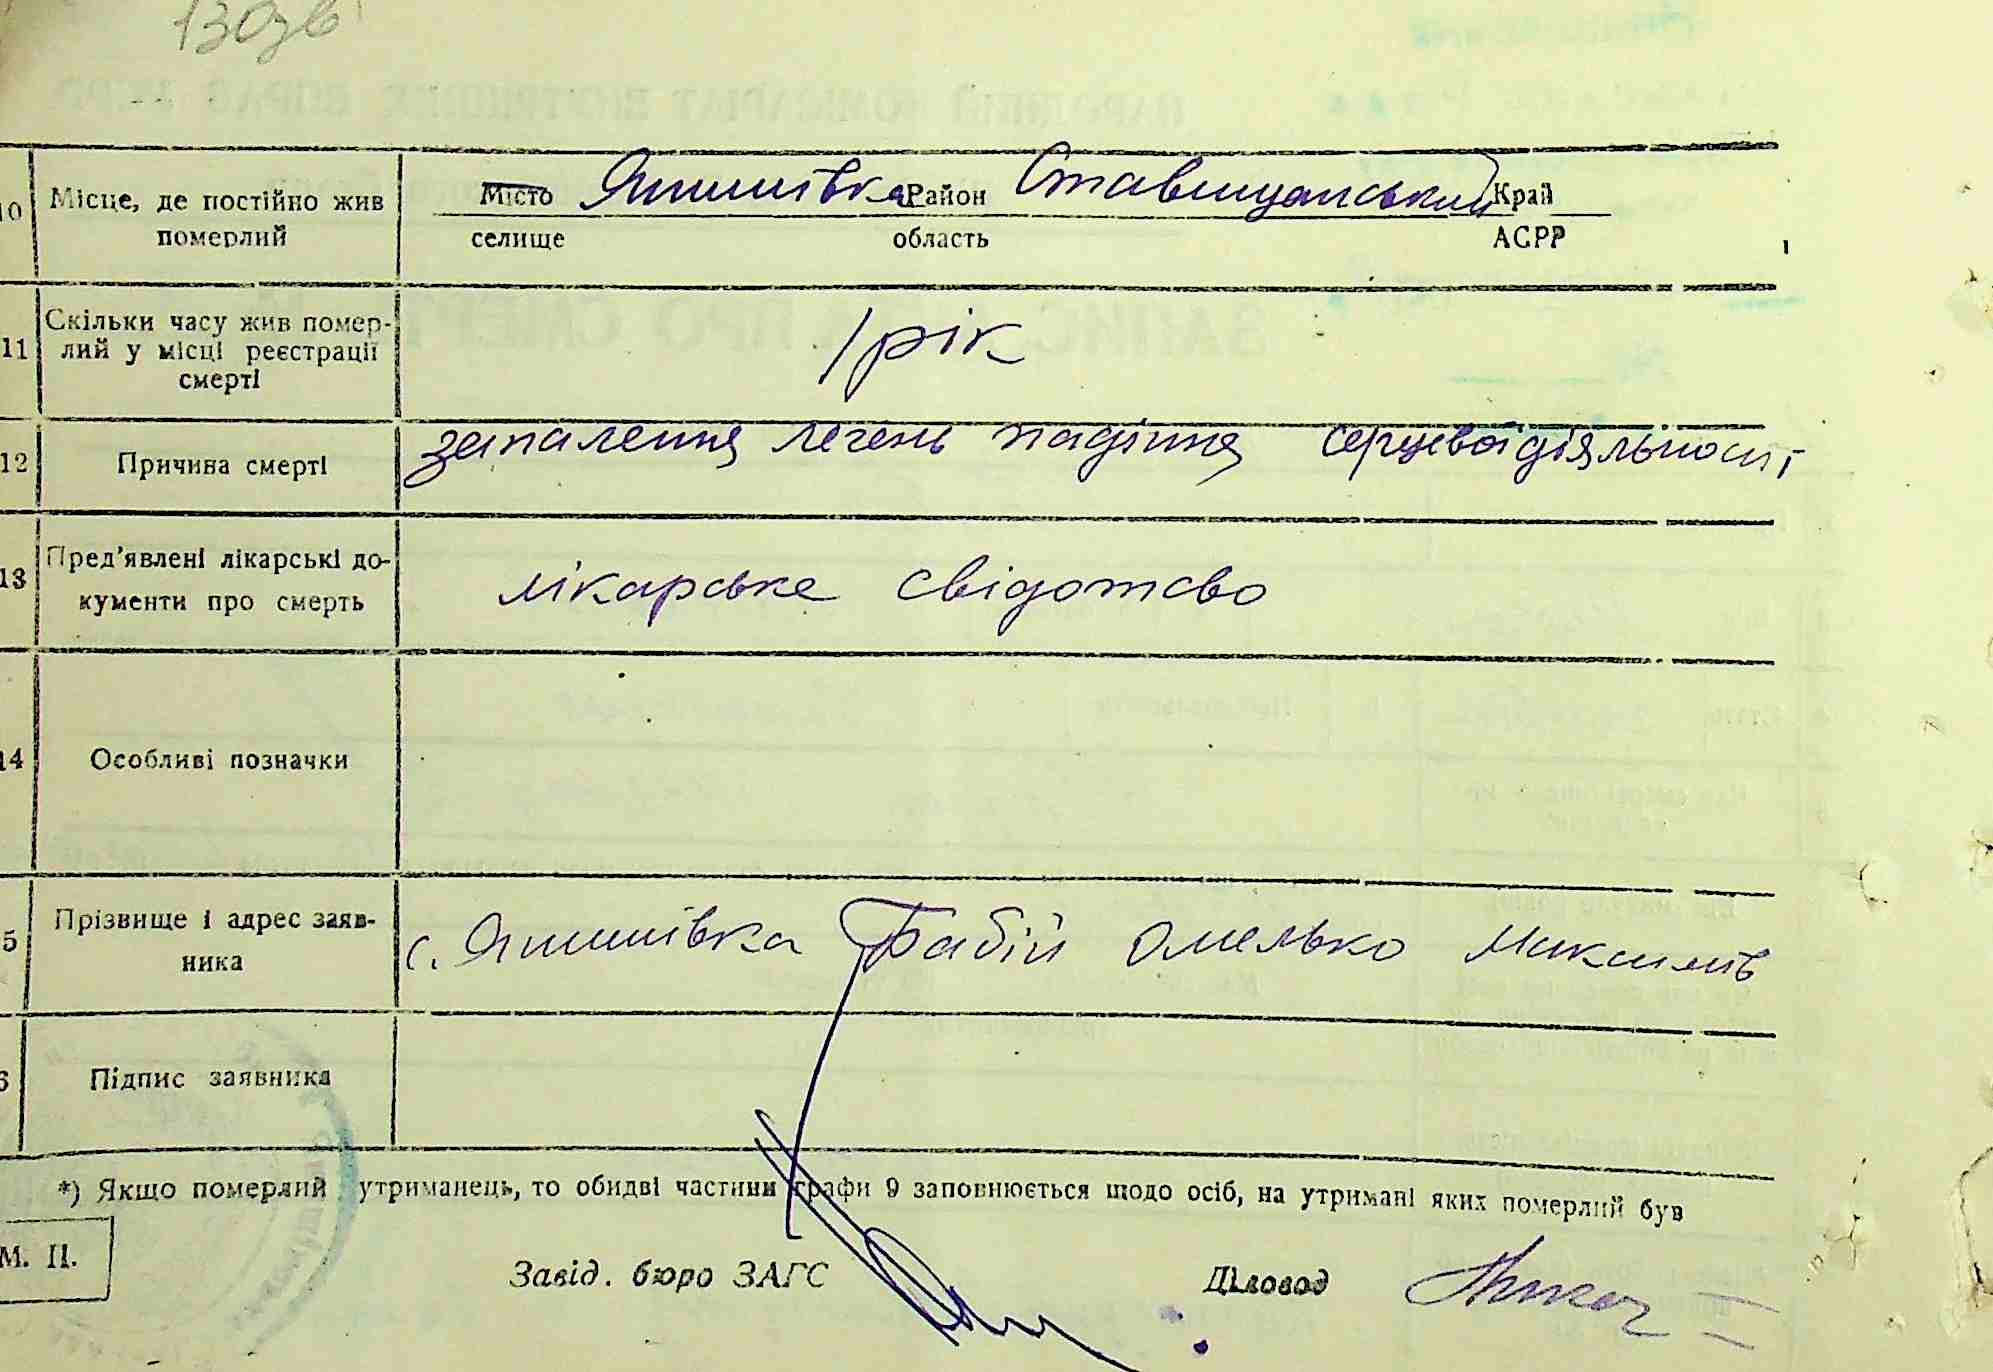 10 Місце, де постійно жив померлий
Місто Яшинівка Район Ставищанський Край
селище область АСРР
11 Скільки часу жив померлий у місці реєстрації смерті
1 рік
12 Причина смерті
запалення легень падіння серцевої діяльності
13 Пред'явлені лікарські документи про смерть
лікарське свідотсво
14 Особливі позначки
5 Прізвище і адрес заявника
с. Яшинівка Бабій Омелько Максимів
6 Підпис заявника
*) Якщо померлий утриманець, то обидві частини графи 9 заповнюється щодо осіб, на утримані яких померлий був
М. П.
Завід. бюро ЗАГС Діловод